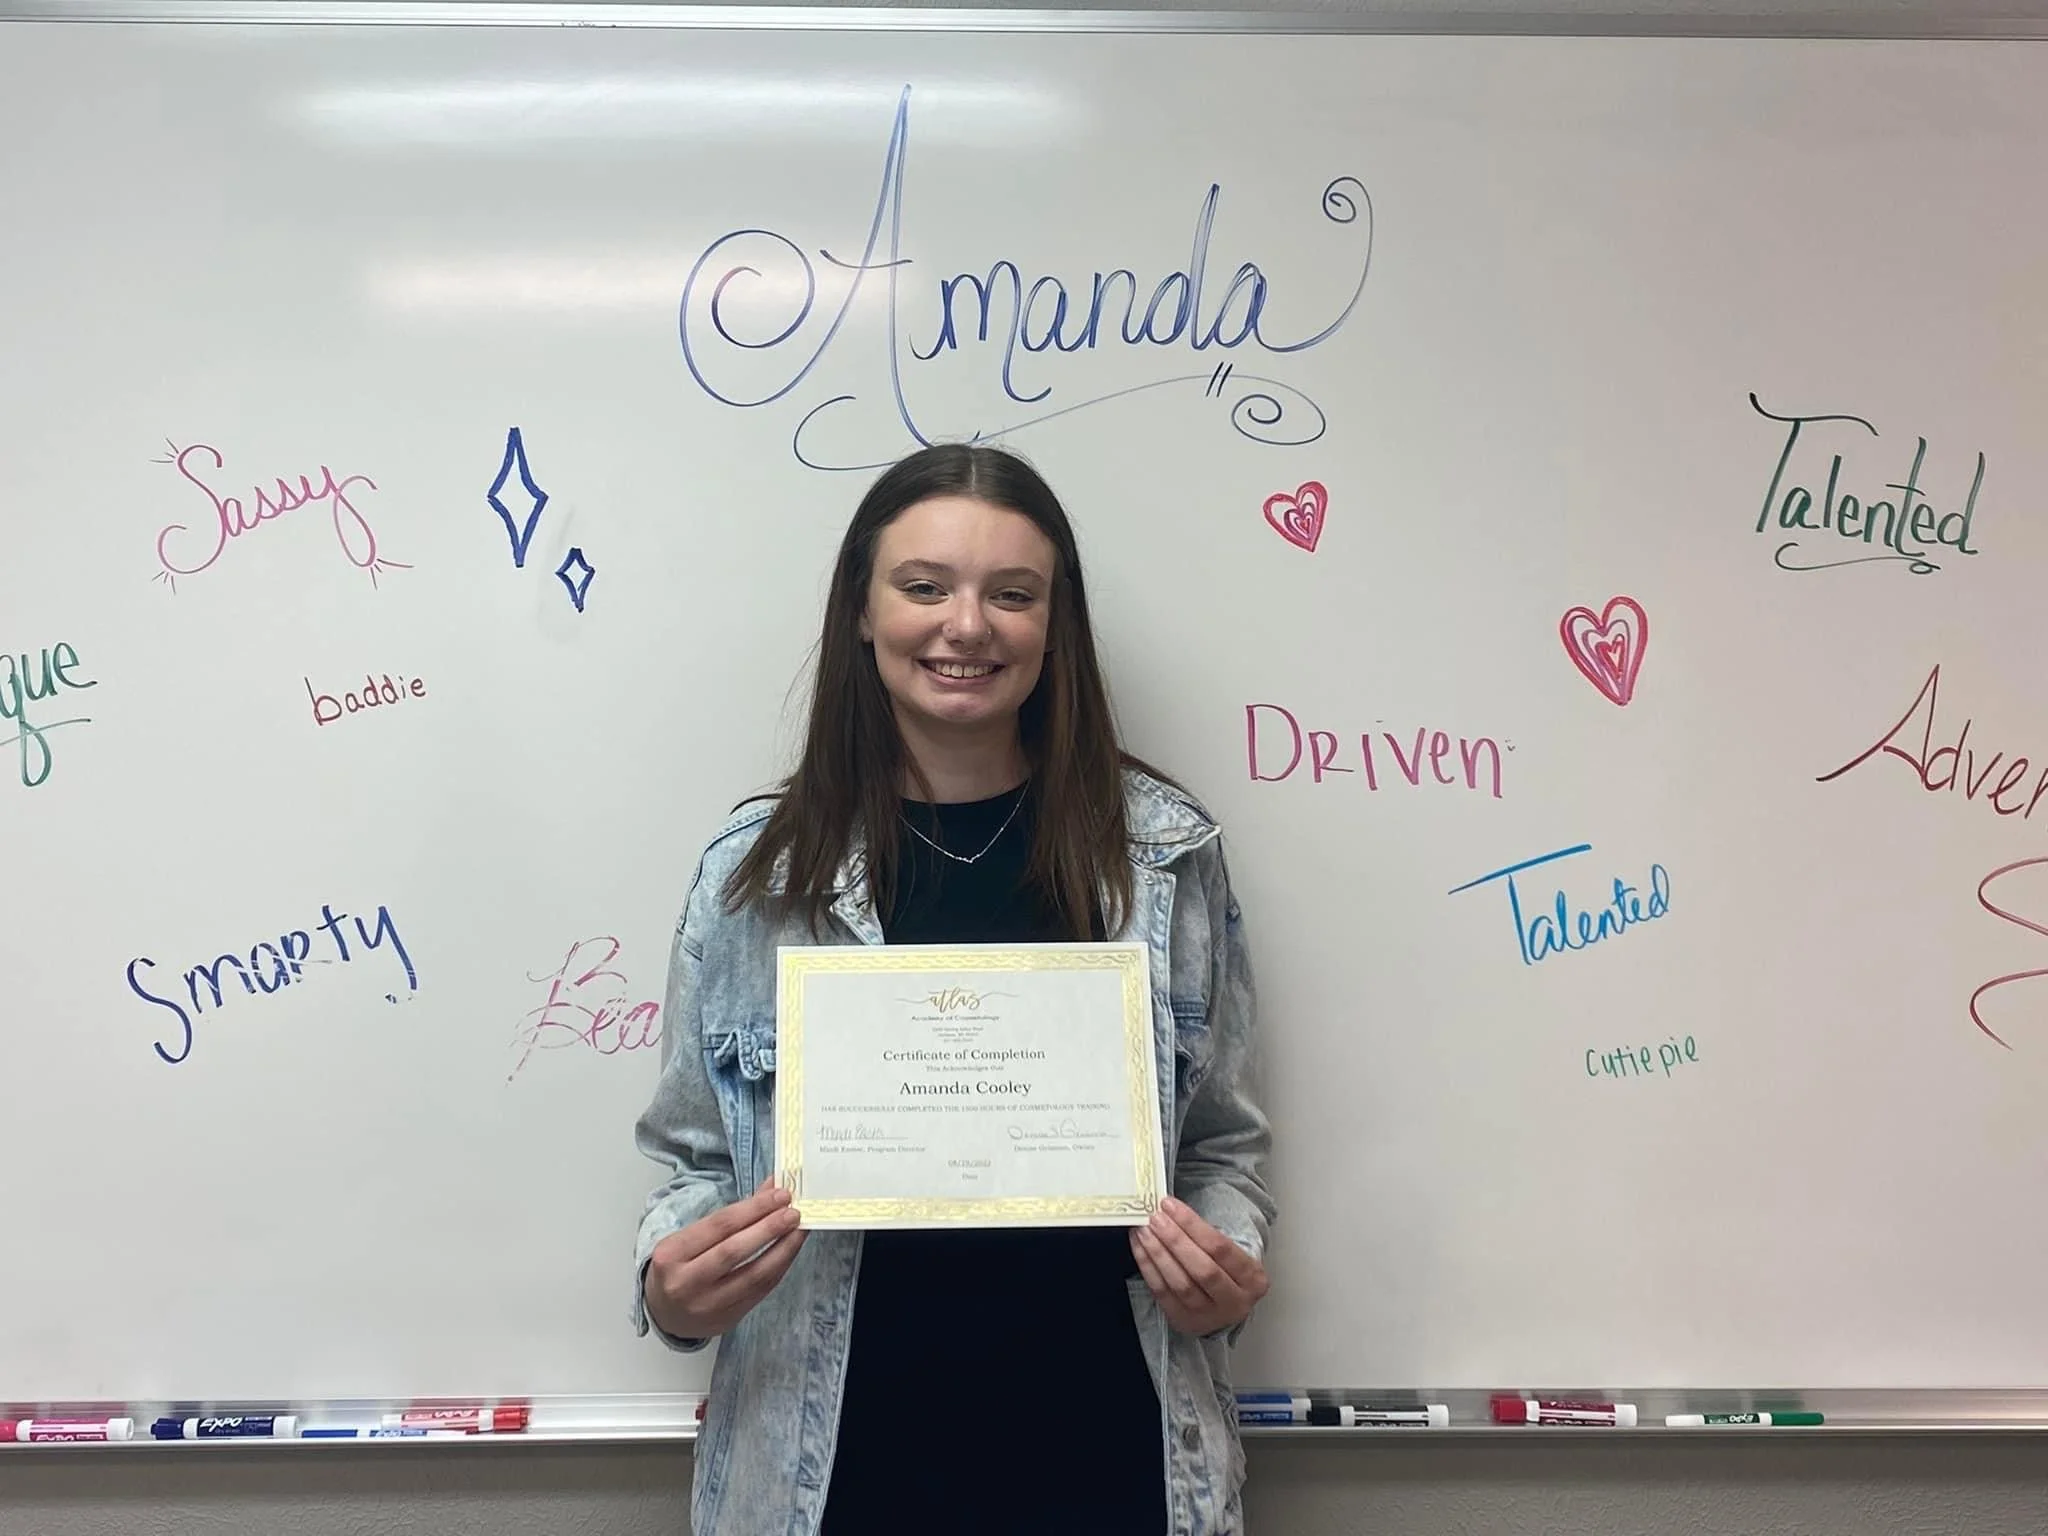 Amanda
Sassy
Talented
que
baddie
Driven
Adver
Talented
Smarty
Bea
cutie pie
atlas
Academy of Cosmetology
Certificate of Completion
This Acknowledges that
Amanda Cooley
HAS SUCCESSFULLY COMPLETED THE 1500 HOURS OF COSMETOLOGY TRAINING
Program Director
Owner
Date
EXPO
EXPO
EXPO
EXPO